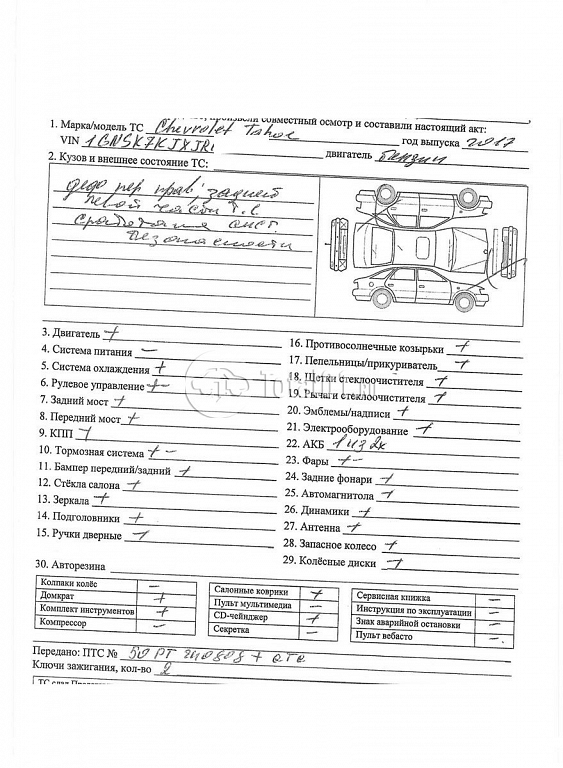 произвели совместный осмотр и составили настоящий акт:
1. Марка/модель ТС Chevrolet Tahoe год выпуска 2017
VIN 1GNSK7KJXJR1 двигатель бензин
2. Кузов и внешнее состояние ТС:
прав задней
левой части т.с
сист.
безопасности
3. Двигатель +
4. Система питания –
5. Система охлаждения +
6. Рулевое управление + –
7. Задний мост +
8. Передний мост +
9. КПП +
10. Тормозная система + –
11. Бампер передний/задний +
12. Стёкла салона +
13. Зеркала +
14. Подголовники +
15. Ручки дверные +
16. Противосолнечные козырьки +
17. Пепельницы/прикуриватель +
18. Щетки стеклоочистителя +
19. Рычаги стеклоочистителя +
20. Эмблемы/надписи +
21. Электрооборудование +
22. АКБ 1 из 2х
23. Фары + –
24. Задние фонари +
25. Автомагнитола +
26. Динамики +
27. Антенна +
28. Запасное колесо +
29. Колёсные диски +
30. Авторезина
Колпаки колёс –
Домкрат +
Комплект инструментов +
Компрессор –
Салонные коврики +
Пульт мультимедиа –
CD-чейнджер +
Секретка –
Сервисная книжка –
Инструкция по эксплуатации –
Знак аварийной остановки –
Пульт вебасто –
Передано: ПТС № 50 РТ + СТС
Ключи зажигания, кол-во 2